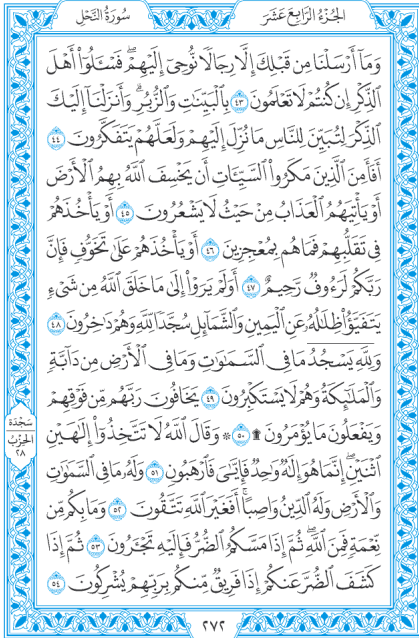 سُورَةُ النَّحْلِ
الجُزْءُ الرَّابِعَ عَشَرَ
وَمَآ أَرْسَلْنَا مِن قَبْلِكَ إِلَّا رِجَالًا نُّوحِىٓ إِلَيْهِمْ ۖ فَسْـَٔلُوٓا۟ أَهْلَ
ٱلذِّكْرِ إِن كُنتُمْ لَا تَعْلَمُونَ ٤٣ بِٱلْبَيِّنَـٰتِ وَٱلزُّبُرِ ۗ وَأَنزَلْنَآ إِلَيْكَ
ٱلذِّكْرَ لِتُبَيِّنَ لِلنَّاسِ مَا نُزِّلَ إِلَيْهِمْ وَلَعَلَّهُمْ يَتَفَكَّرُونَ ٤٤
أَفَأَمِنَ ٱلَّذِينَ مَكَرُوا۟ ٱلسَّيِّـَٔاتِ أَن يَخْسِفَ ٱللَّهُ بِهِمُ ٱلْأَرْضَ
أَوْ يَأْتِيَهُمُ ٱلْعَذَابُ مِنْ حَيْثُ لَا يَشْعُرُونَ ٤٥ أَوْ يَأْخُذَهُمْ
فِى تَقَلُّبِهِمْ فَمَا هُم بِمُعْجِزِينَ ٤٦ أَوْ يَأْخُذَهُمْ عَلَىٰ تَخَوُّفٍ فَإِنَّ
رَبَّكُمْ لَرَءُوفٌ رَّحِيمٌ ٤٧ أَوَلَمْ يَرَوْا۟ إِلَىٰ مَا خَلَقَ ٱللَّهُ مِن شَىْءٍ
يَتَفَيَّؤُا۟ ظِلَـٰلُهُۥ عَنِ ٱلْيَمِينِ وَٱلشَّمَآئِلِ سُجَّدًا لِّلَّهِ وَهُمْ دَٰخِرُونَ ٤٨
وَلِلَّهِ يَسْجُدُ مَا فِى ٱلسَّمَـٰوَٰتِ وَمَا فِى ٱلْأَرْضِ مِن دَآبَّةٍ
وَٱلْمَلَـٰٓئِكَةُ وَهُمْ لَا يَسْتَكْبِرُونَ ٤٩ يَخَافُونَ رَبَّهُم مِّن فَوْقِهِمْ
وَيَفْعَلُونَ مَا يُؤْمَرُونَ ۩ ٥٠ ۞ وَقَالَ ٱللَّهُ لَا تَتَّخِذُوٓا۟ إِلَـٰهَيْنِ
ٱثْنَيْنِ ۖ إِنَّمَا هُوَ إِلَـٰهٌ وَٰحِدٌ ۖ فَإِيَّـٰىَ فَٱرْهَبُونِ ٥١ وَلَهُۥ مَا فِى ٱلسَّمَـٰوَٰتِ
وَٱلْأَرْضِ وَلَهُ ٱلدِّينُ وَاصِبًا ۚ أَفَغَيْرَ ٱللَّهِ تَتَّقُونَ ٥٢ وَمَا بِكُم مِّن
نِّعْمَةٍ فَمِنَ ٱللَّهِ ۖ ثُمَّ إِذَا مَسَّكُمُ ٱلضُّرُّ فَإِلَيْهِ تَجْـَٔرُونَ ٥٣ ثُمَّ إِذَا
كَشَفَ ٱلضُّرَّ عَنكُمْ إِذَا فَرِيقٌ مِّنكُم بِرَبِّهِمْ يُشْرِكُونَ ٥٤
سَجْدَة
الحِزْبُ
٢٨
٢٧٢